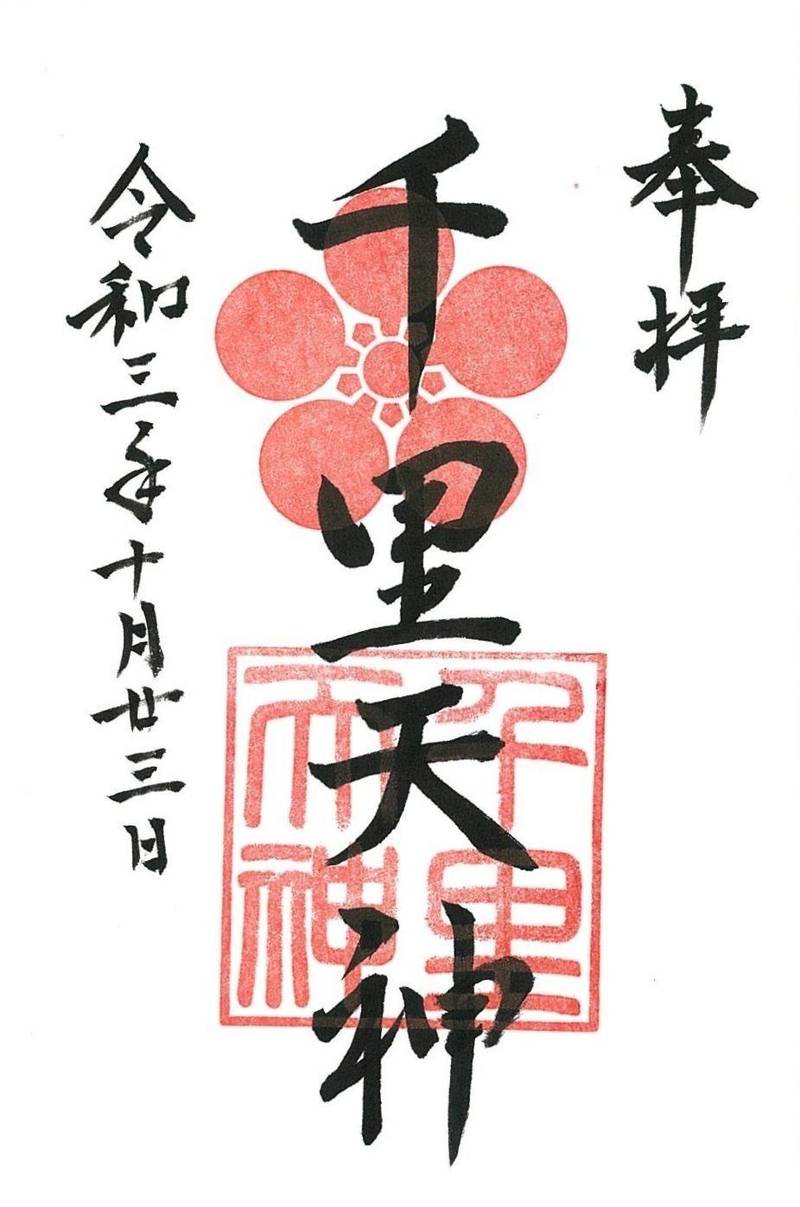 奉拝
千里天神
千里
天神
令和三年十月廿三日